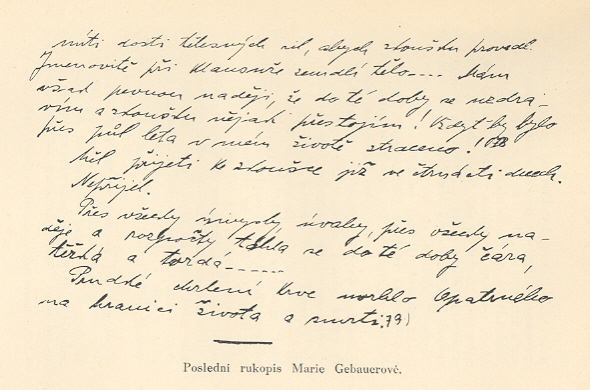 míti dosti tělesných sil, abych zkoušku provedl.
Jmenovitě při klausuře zemdlí tělo---- Mám
však pevnou naději, že do té doby se uzdra-
vím a zkoušku nějak přestojím! Vždyť by bylo
přes půl léta v mém životě ztraceno!
Měl přijeti ke zkoušce již ve čtrnácti dnech.
Nepřijel.
Přes všecky úmysly úvahy, přes všecky na-
děje a rozpočty táhla se do té doby čára,
těžká a tvrdá-----
Prudké chrlení krve vrhlo Opatrného
na hranici života a smrti. 79)
Poslední rukopis Marie Gebauerové.